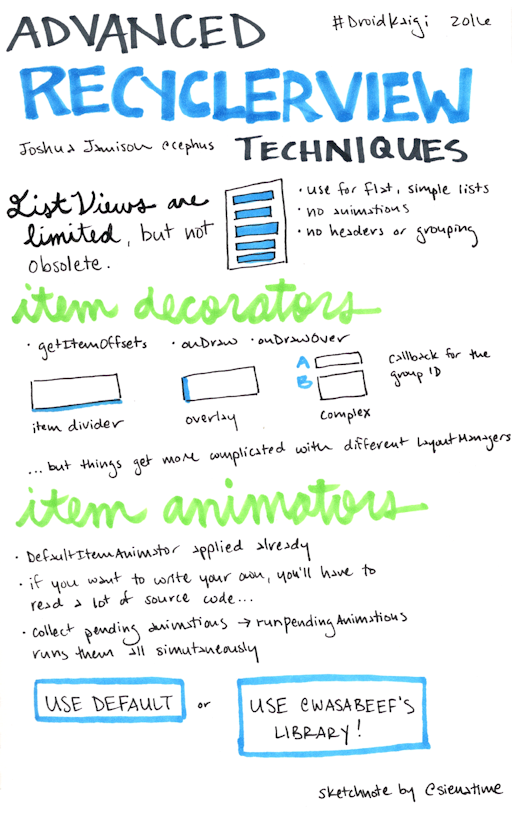 ADVANCED
#DroidKaigi 2016
RECYCLERVIEW
Joshua Jamison @cephus
TECHNIQUES
ListViews are
limited, but not
obsolete.
· use for flat, simple lists
· no animations
· no headers or grouping
item decorators
· getItemOffsets · onDraw · onDrawOver
A
B
callback for the
group ID
item divider overlay complex
...but things get more complicated with different LayoutManagers
item animators
· DefaultItemAnimator applied already
· if you want to write your own, you'll have to
read a lot of source code...
· collect pending animations → runPendingAnimations
runs them all simutaneously
USE DEFAULT or USE @WASABEEF'S
LIBRARY!
sketchnote by @sienatime